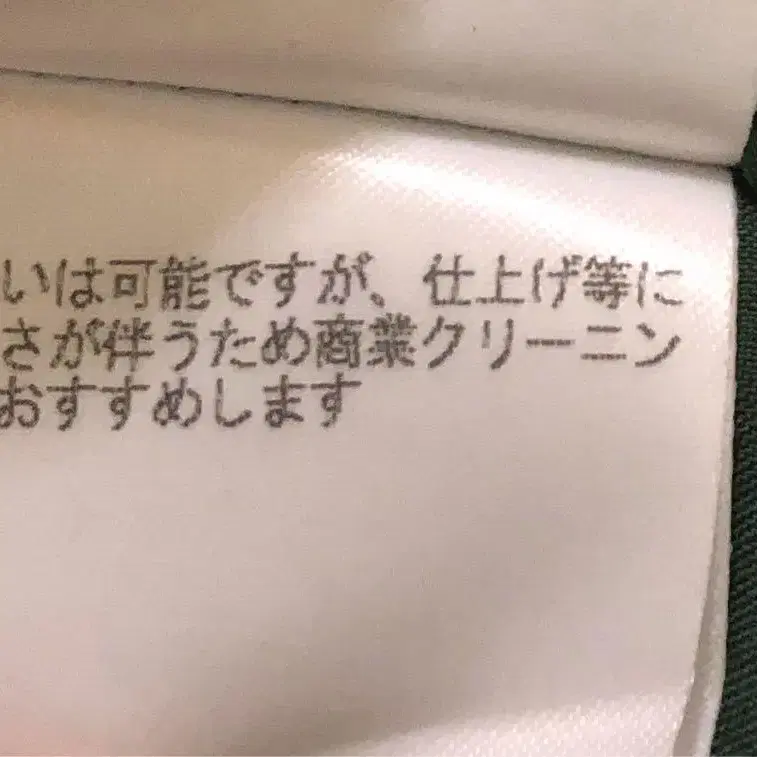 いは可能ですが、仕上げ等に
さが伴うため商業クリーニン
おすすめします